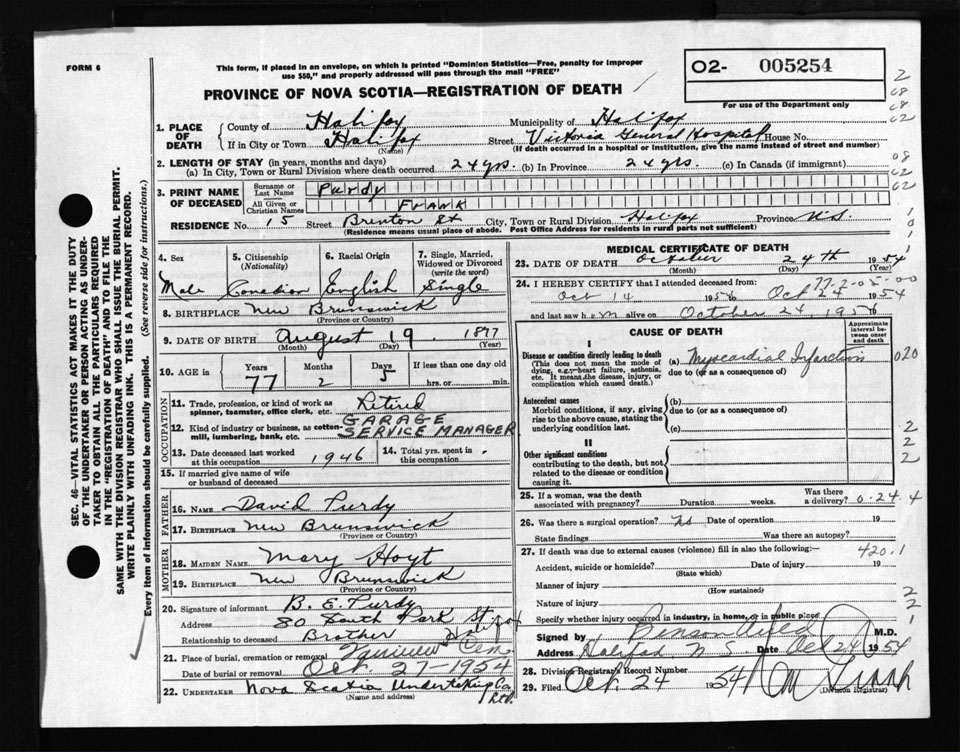 FORM 6
This form, if placed in an envelope, on which is printed "Dominion Statistics—Free, penalty for improper
use $50," and properly addressed will pass through the mail "FREE"
PROVINCE OF NOVA SCOTIA—REGISTRATION OF DEATH
02- 005254
For use of the Department only
1. PLACE OF DEATH
County of Halifax Municipality of Halifax
If in City or Town Halifax Street Victoria General Hospital House No.
(Name) (If death occurred in a hospital or institution, give the name instead of street and number)
2. LENGTH OF STAY (in years, months and days)
(a) In City, Town or Rural Division where death occurred 24 yrs. (b) In Province 24 yrs. (c) In Canada (if immigrant)
3. PRINT NAME OF DECEASED
Surname or Last Name Purdy
All Given or Christian Names Frank
RESIDENCE No. 15 Street Brenton St City, Town or Rural Division Halifax Province N.S.
(Residence means usual place of abode. Post Office Address for residents in rural parts not sufficient)
4. Sex
Male
5. Citizenship
(Nationality)
Canadian
6. Racial Origin
English
7. Single, Married, Widowed or Divorced
(write the word)
Single
8. BIRTHPLACE New Brunswick
(Province or Country)
9. DATE OF BIRTH August 19 1877
(Month) (Day) (Year)
10. AGE in
Years Months Days If less than one day old
77 2 5 hrs. or min.
OCCUPATION
11. Trade, profession, or kind of work as spinner, teamster, office clerk, etc. Retired
12. Kind of industry or business, as cotton-mill, lumbering, bank, etc. GARAGE
SERVICE MANAGER
13. Date deceased last worked at this occupation 1946
14. Total yrs. spent in this occupation
15. If married give name of wife or husband of deceased
FATHER
16. Name David Purdy
17. Birthplace New Brunswick
(Province or Country)
MOTHER
18. MAIDEN NAME Mary Hoyt
19. Birthplace New Brunswick
(Province or Country)
20. Signature of informant B. E. Purdy
Address 80 South Park St Halifax
Relationship to deceased Brother
21. Place of burial, cremation or removal Cem
Date of burial or removal Oct. 27-1954
22. UNDERTAKER Nova Scotia Undertaking Co. Ltd.
(Name and address)
MEDICAL CERTIFICATE OF DEATH
23. DATE OF DEATH October 24th 1954
(Month) (Day) (Year)
24. I HEREBY CERTIFY that I attended deceased from:
Oct 14 1954 to Oct 24 1954
and last saw him alive on October 24 1954
CAUSE OF DEATH
Approximate interval between onset and death
I
Disease or condition directly leading to death
(This does not mean the mode of dying, e.g., heart failure, asthenia, etc. It means the disease, injury, or complication which caused death.)
(a) Myocardial Infarction
due to (or as a consequence of)
Antecedent causes
Morbid conditions, if any, giving rise to the above cause, stating the underlying condition last.
(b)
due to (or as a consequence of)
(c)
II
Other significant conditions
contributing to the death, but not related to the disease or condition causing it.
25. If a woman, was the death associated with pregnancy? Duration weeks. Was there a delivery?
26. Was there a surgical operation? No Date of operation 19
State findings Was there an autopsy?
27. If death was due to external causes (violence) fill in also the following:— 420.1
Accident, suicide or homicide? Date of injury 19
(State which)
Manner of injury
(How sustained)
Nature of injury
Specify whether injury occurred in industry, in home, or in public place
Signed by M.D.
Address Halifax N.S. Date Oct 24 1954
28. Division Registrar's Record Number
29. Filed Oct. 24 1954
(Division Registrar)
SEC. 46—VITAL STATISTICS ACT MAKES IT THE DUTY
OF THE UNDERTAKER OR PERSON ACTING AS UNDER-
TAKER TO OBTAIN ALL THE PARTICULARS REQUIRED
IN THE "REGISTRATION OF DEATH" AND TO FILE THE
SAME WITH THE DIVISION REGISTRAR WHO SHALL ISSUE THE BURIAL PERMIT.
WRITE PLAINLY WITH UNFADING INK. THIS IS A PERMANENT RECORD.
Every item of information should be carefully supplied. (See reverse side for instructions.)